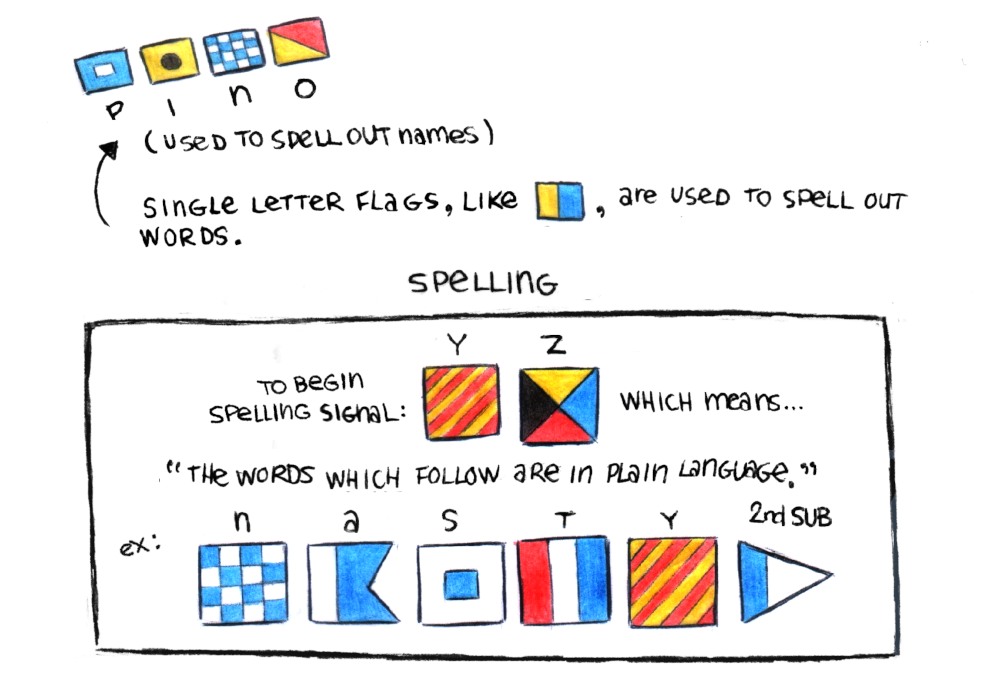 P I n O
(USED TO SPELL OUT names)
SINGLE LETTER FLAGS, LIKE , are USED TO SPELL OUT
WORDS.
SPELLING
Y Z
TO BEGIN
SPELLING SIGNAL:
WHICH means...
"THE WORDS WHICH FOLLOW are In PLaIn LanGUaGE."
ex:
n a S T Y 2nd SUB